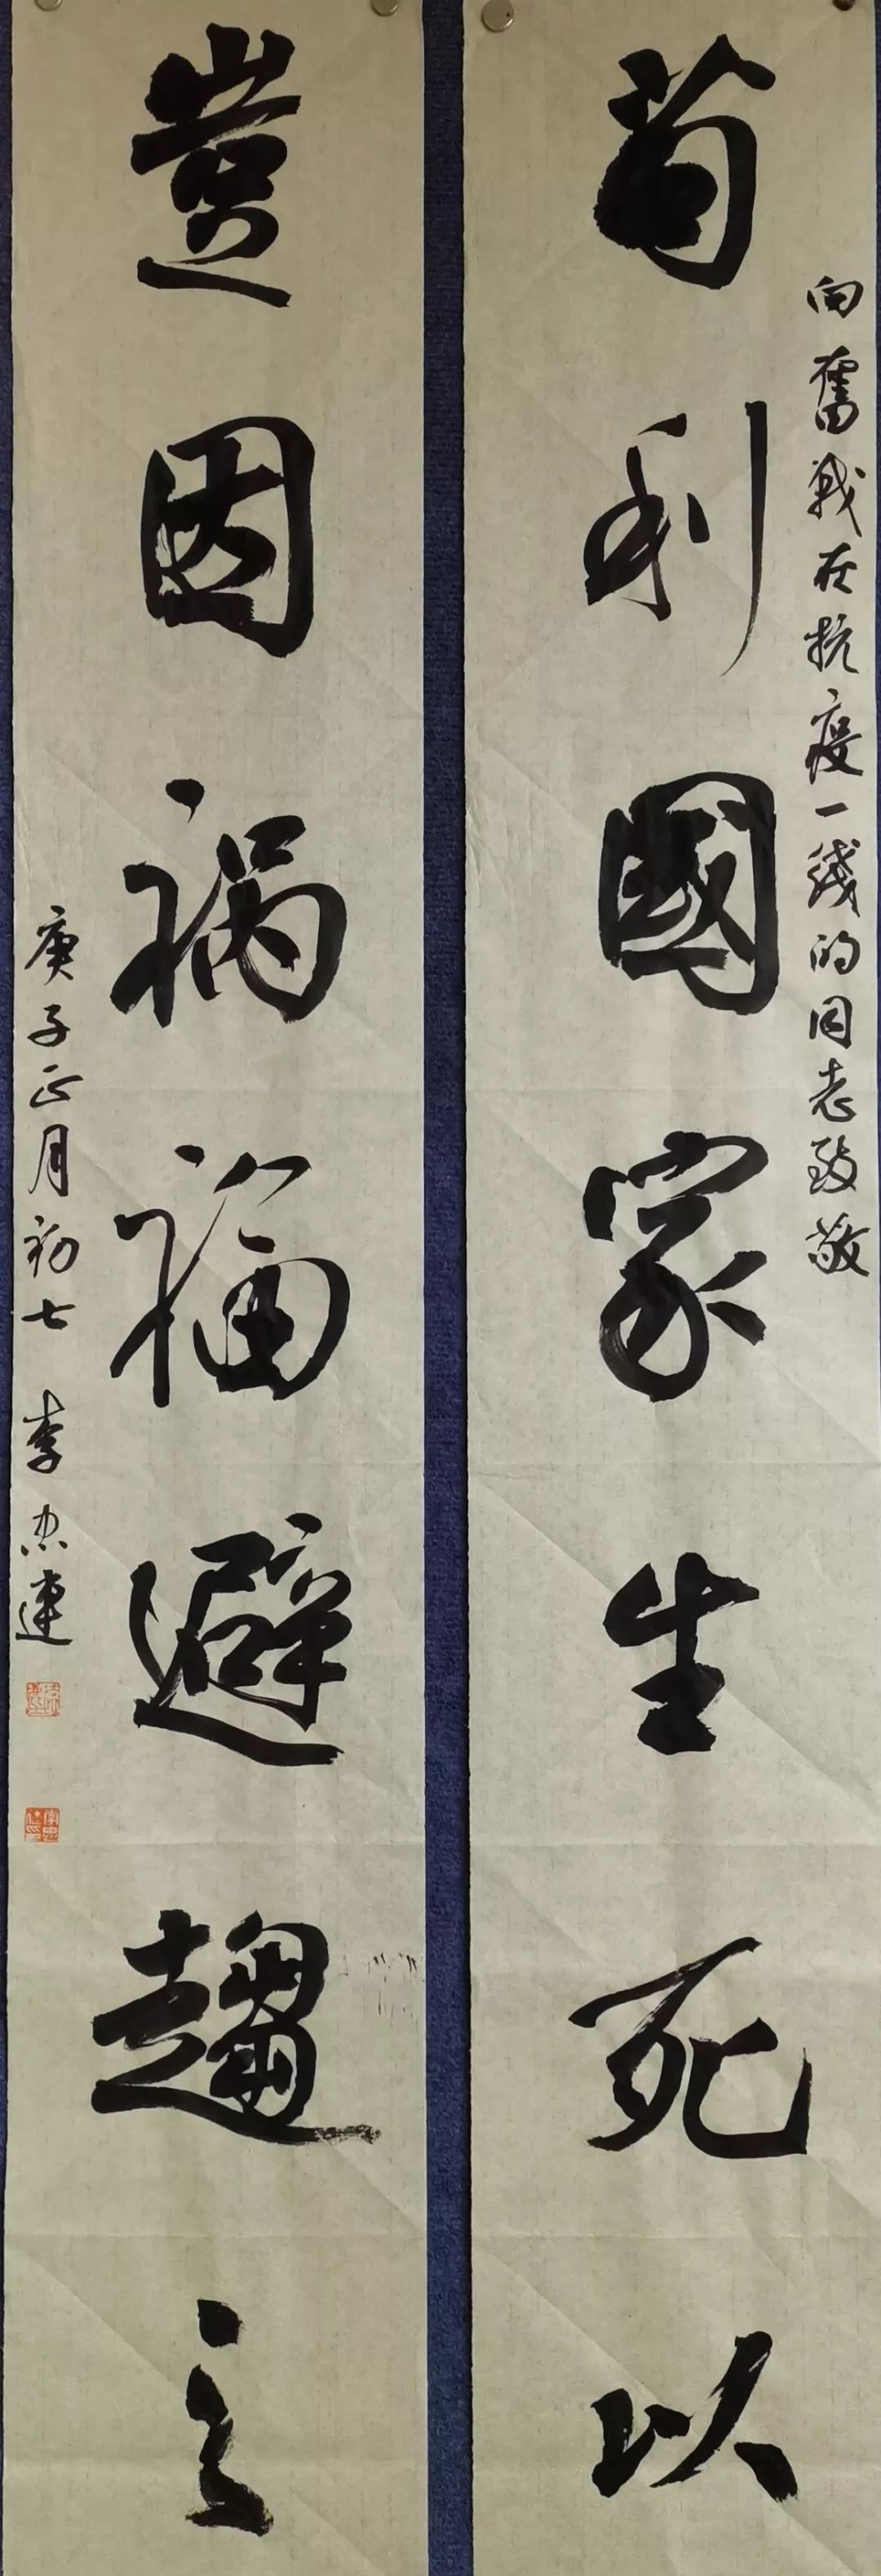 苟利國家生死以
向奮战在抗疫一线的同志致敬
豈因祸福避趨之
庚子正月初七 李忠連